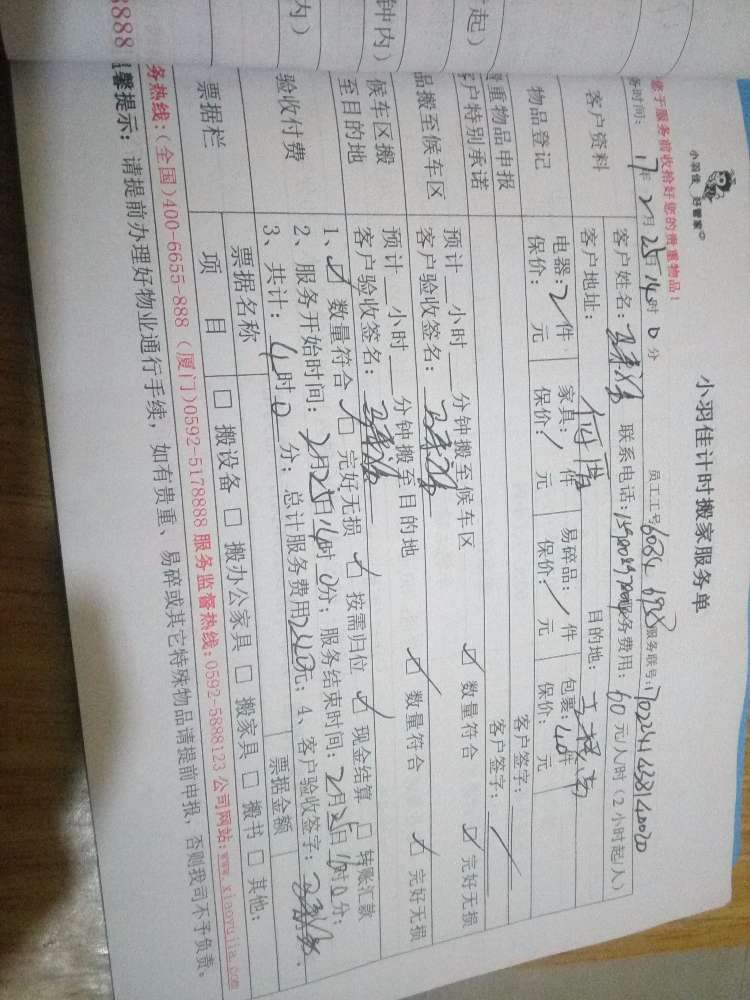 小羽佳 好管家
小羽佳计时搬家服务单
于服务前收拾好您的贵重物品!
员工工号 6084 6978 服务联号:
务时间: 17年 2月 25日 14时 0分
客户资料
客户姓名: 联系电话: 务费用: 60 元/人/时 (2小时起/人)
客户地址: 目的地:
物品登记
电器: 2 件 家具: / 件 易碎品: / 件 包裹: 40 件
保价: 元 保价: 元 保价: 元 保价: 元
重物品申报 客户签字:
户特别承诺 客户签字:
品搬至候车区
预计__小时__分钟搬至候车区 数量符合 完好无损
客户验收签名:
候车区搬至目的地
预计__小时__分钟搬至目的地 数量符合 完好无损
客户验收签名:
验收付费
1、数量符合 完好无损 按需归位 现金结算 转账汇款
2、服务开始时间: 2月25日14时0分; 服务结束时间: 2月25日 时0分;
3、共计: 4时0分; 总计服务费用240元; 4、客户验收签字:
票据栏
票据名称 票据金额
项目 搬设备 搬办公家具 搬家具 搬书 其他:
务热线:(全国)400-6655-888 (厦门)0592-5178888 服务监督热线:0592-5888123 公司网站:www.xiaoyujia.com
馨提示: 请提前办理好物业通行手续, 如有贵重、易碎或其它特殊物品请提前申报, 否则我司不予负责。
起)
钟内)
内)
8888